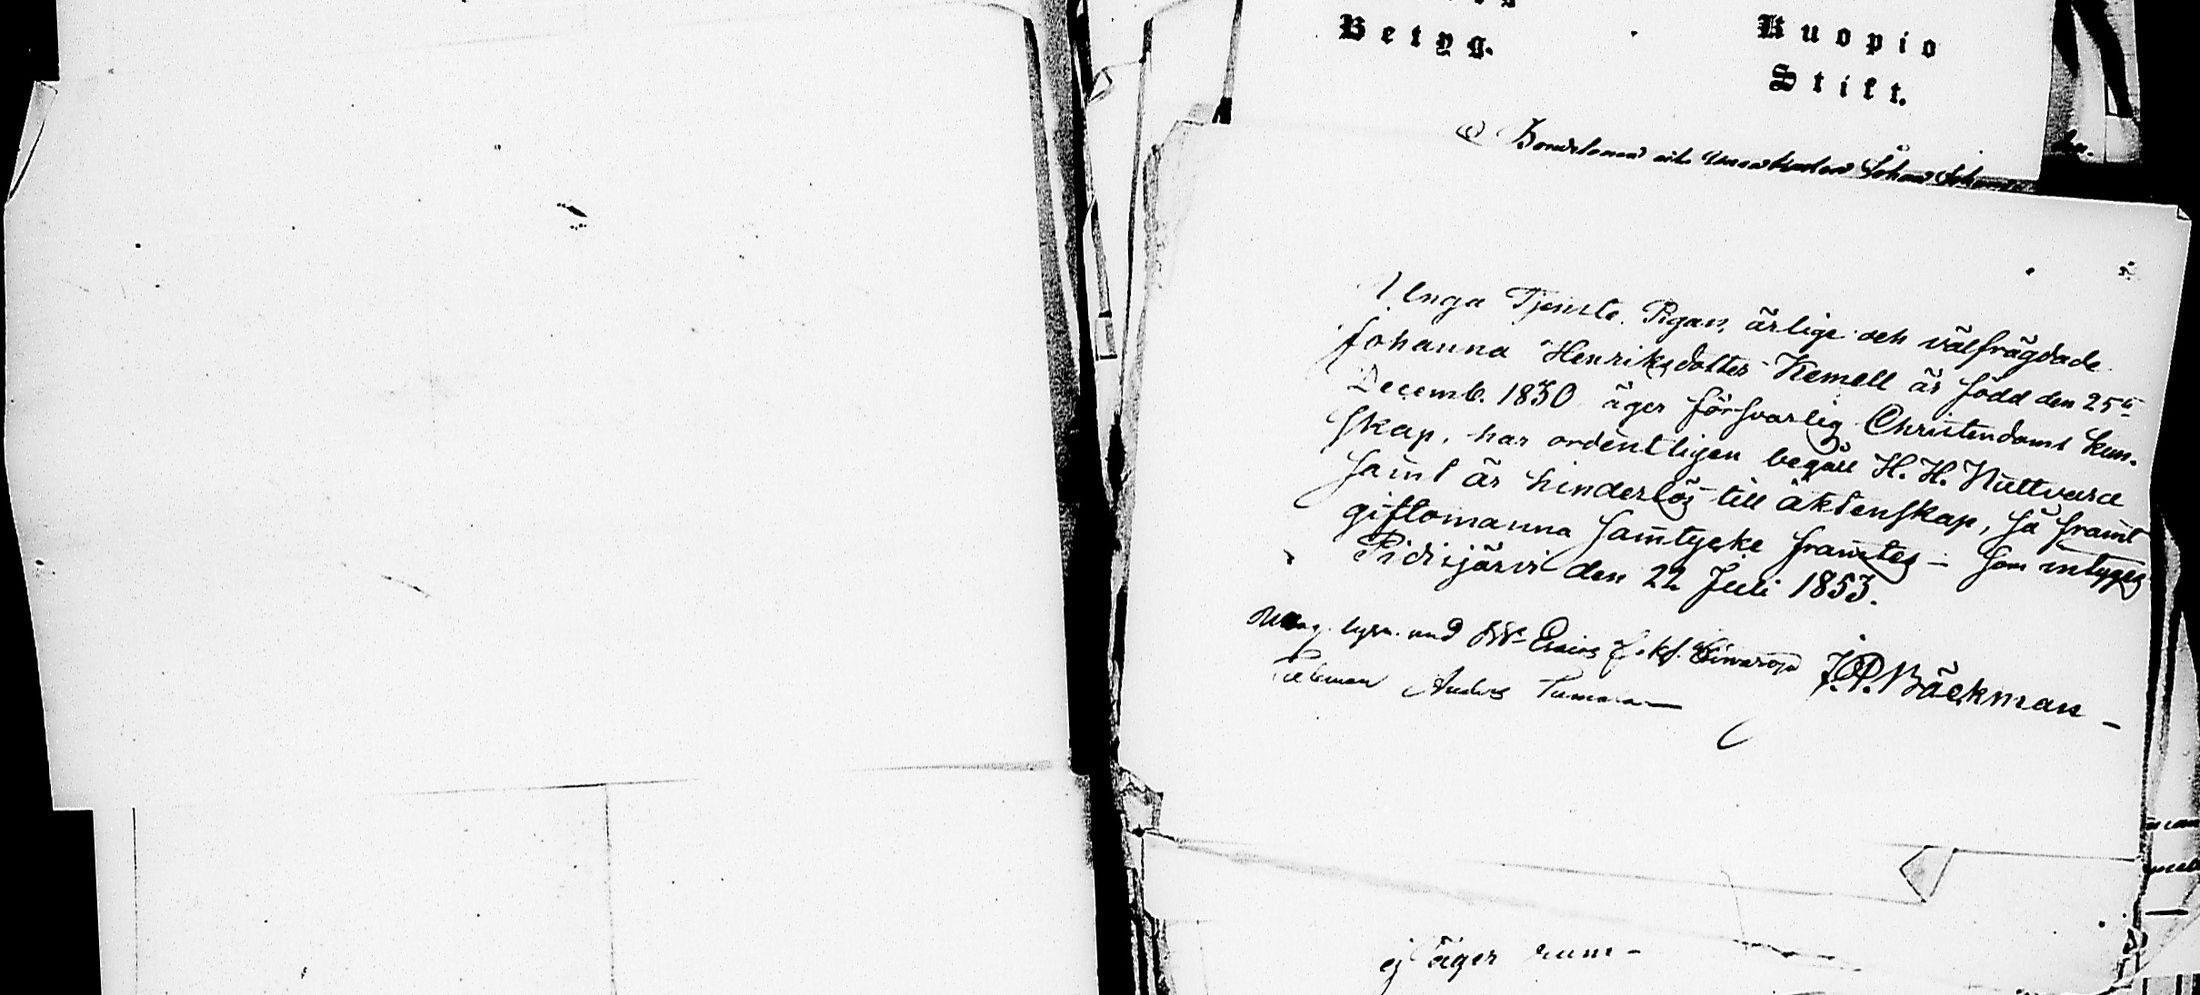 Betyg.
Kuopio
Stift.
Johan
Unga Tjenste Pigan, ärlige och välfrägdade
Johanna Henriksdotter Kemell är född den 25te
Decemb. 1830 äger försvarlig Christendoms kun-
skap, har ordentligen begått H. H. Nattvard
samt är hinderlös till äktenskap, så framt
giftomanna samtycke framtes – som intygas
Pidisjärvi den 22 Juli 1853.
J. P. Bäckman –
lysn. Esaias
Anders
ej äger rum –